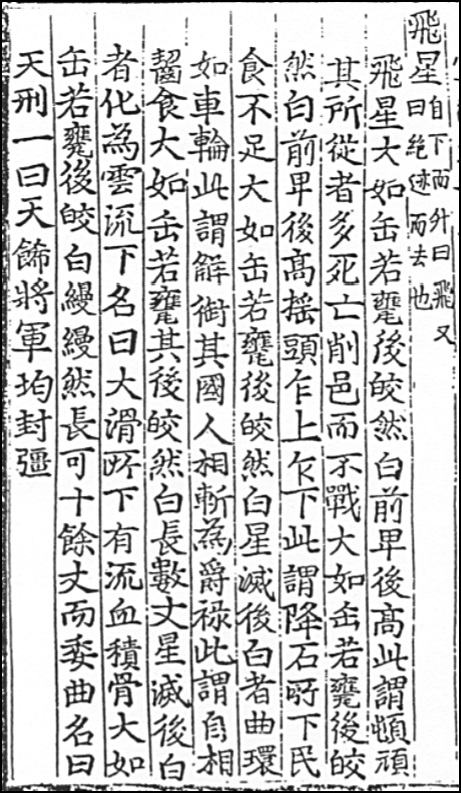 飛星自下而升曰飛又曰絶迹而去也
飛星大如缶若甕後皎然白前卑後高此謂頓頑
其所從者多死亡削邑而不戰大如缶若甕後皎
然白前卑後高揺頭乍上乍下此謂降石所下民
食不足大如缶若甕後皎然白星滅後白者曲環
如車輪此謂解銜其國人相斬為爵禄此謂自相
齧食大如缶若甕其後皎然白長數丈星滅後白
者化為雲流下名曰大滑所下有流血積骨大如
缶若甕後皎白縵縵然長可十餘丈而委曲名曰
天刑一曰天飾將軍均封彊